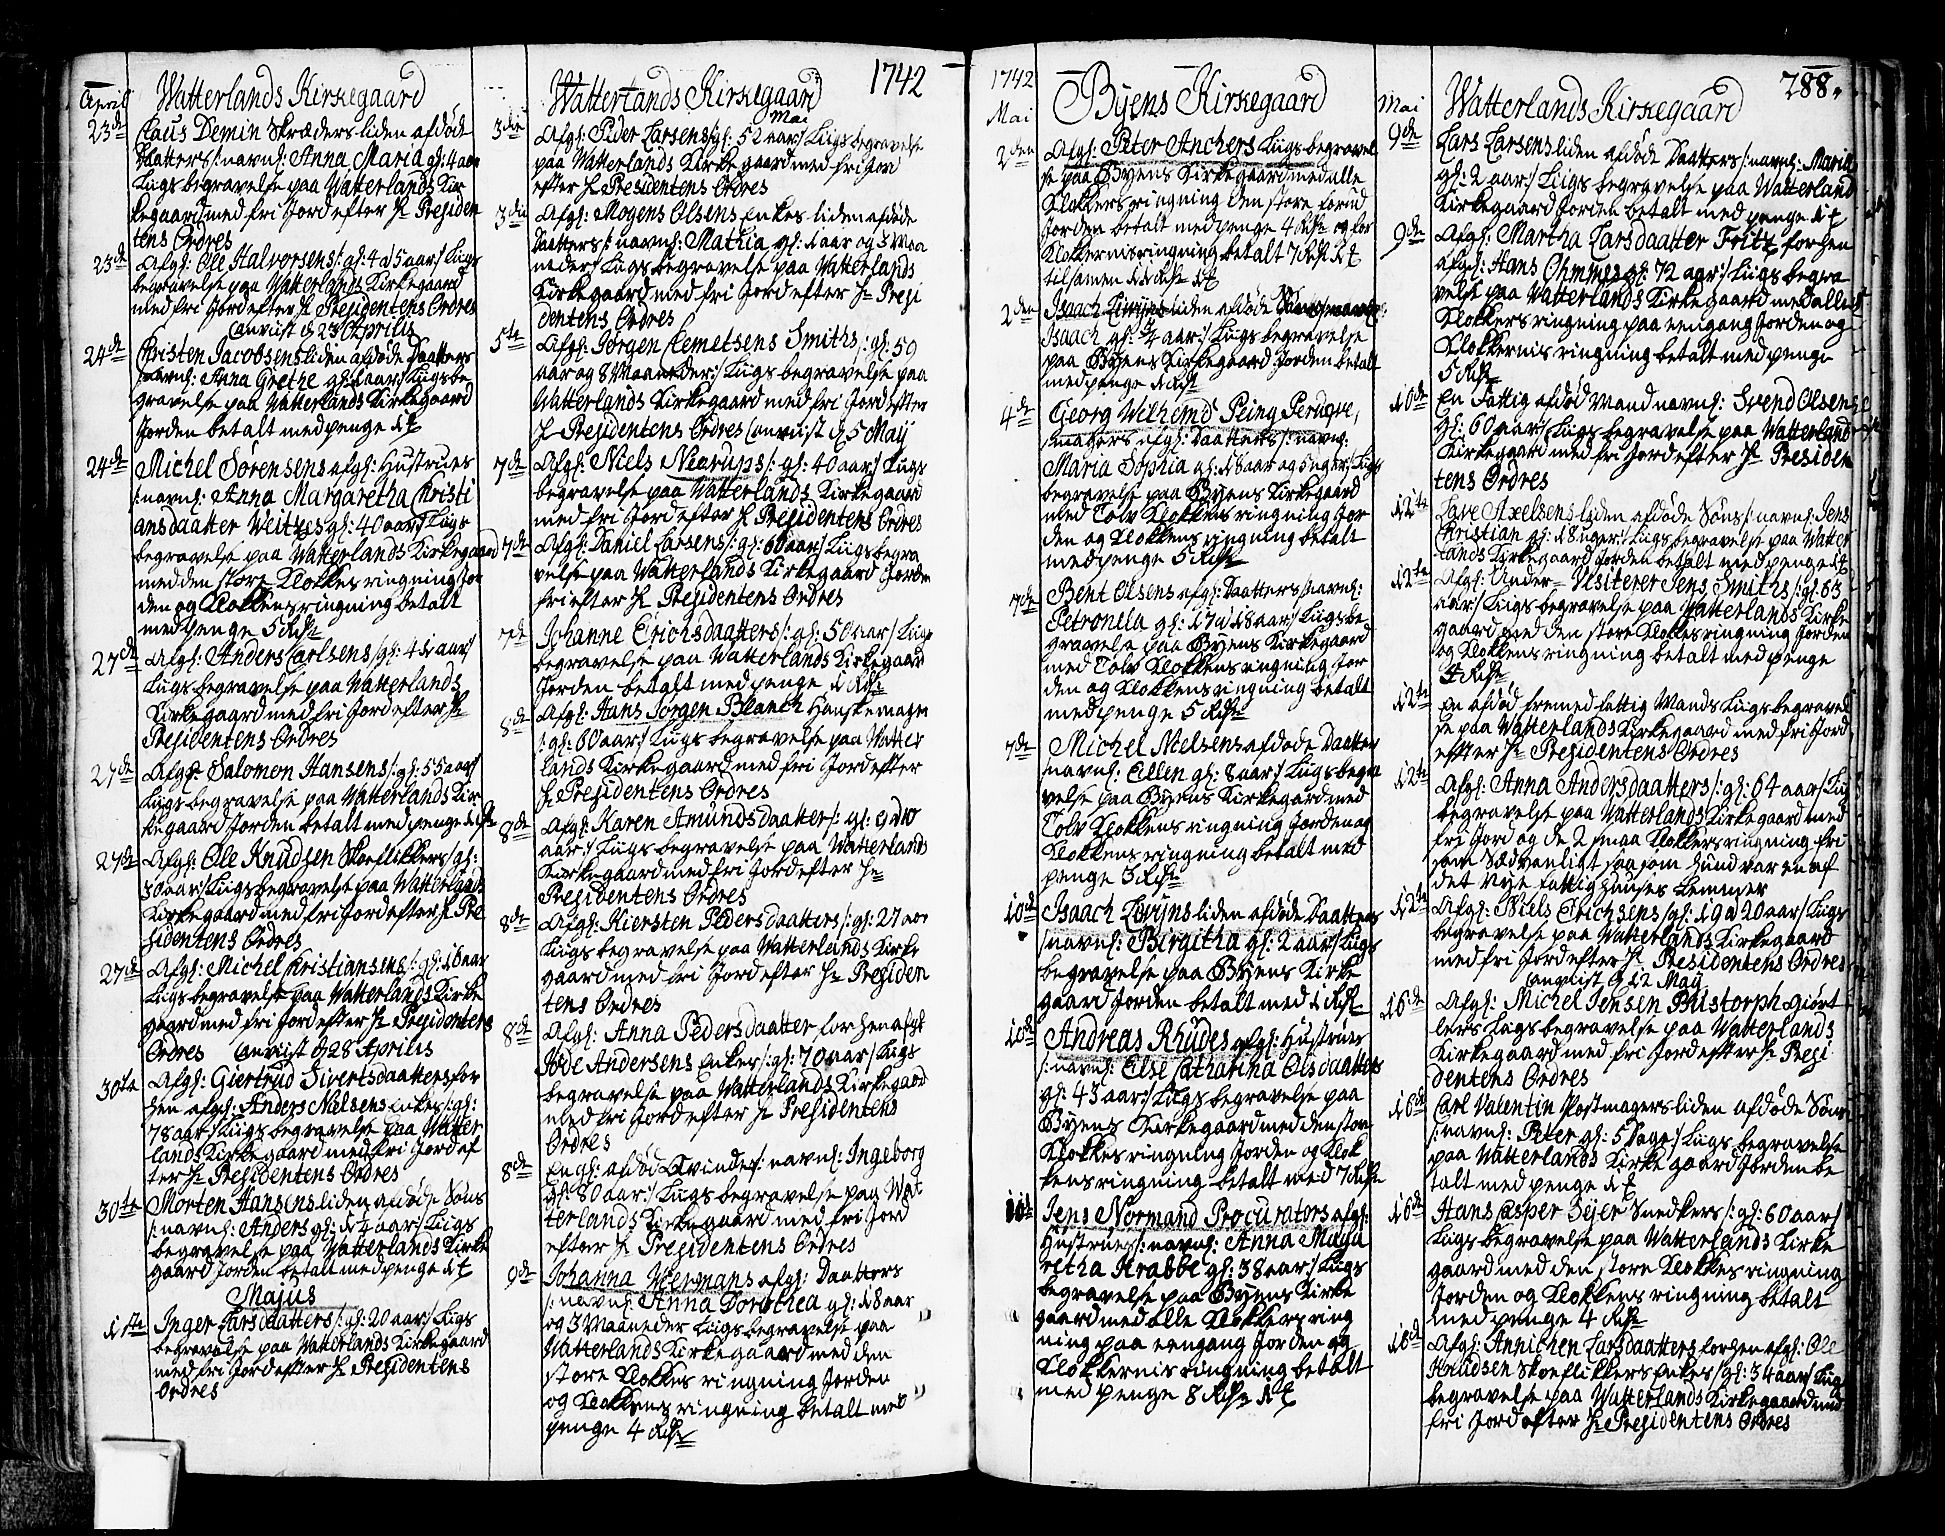 April Watterlands Kirkegaard
23de Claus Demin Skræders liden afdøde
Datters /: navnl: Anna Maria gl: 4 aar
Liigs begravelse paa Watterlands Kir
kegaard med fri Jord efter Hr Presiden
tens Ordres
23de Afgl: Ole Halvorsens /: gl: 4 a 5 aar :/ Liigs
begravelse paa Watterlands Kirkegaard
med fri Jord efter Hr Presidentens Ordres
anviist d 23 Aprilis
24de Christen Jacobsens liden afdøde Daatters
/: navnl: Anna Grethe gl: 1 aar :/ Liigs be
gravelse paa Watterlands Kirkegaard
Jorden betalt med penge
24de Michel Sørensens afgl: Hustrues
/: navnl: Anna Margaretha Christi
ansdaatter Weitzes gl: 40 aar :/ Liigs
begravelse paa Watterlands Kirkegaard
med den store Klokkes ringning Jor
den og Klokkens ringning betalt
med penge 5 Rdr
27de Afgl: Anders Carlsens /: gl: 41 aar :/
Liigs begravelse paa Watterlands
Kirkegaard med fri Jord efter Hr
Presidentens Ordres
27de Afgl: Salomon Hansens /: gl: 55 aar :/
Liigs begravelse paa Watterlands Kir
kegaard Jorden betalt med penge 1 Rdr
27de Afgl: Ole Knudsen Skoeflikkers /: gl:
30 aar :/ Liigs begravelse paa Watterlands
Kirkegaard med fri Jord efter Hr Pre
sidentens Ordres
27de Afgl: Michel Kristiansens /: gl: 16 aar
Liigs begravelse paa Watterlands Kirke
gaard med fri Jord efter Hr Presidentens
Ordres anviist d 28 Aprilis
30te Afgl: Giertrud Sivertsdaatters for
hen afgl: Anders Nielsens Enkes /: gl:
78 aar :/ Liigs begravelse paa Watter
lands Kirkegaard med fri Jord ef
ter Hr Presidentens Ordres
30te Morten Hansens liden afdøde Søns
/: navnl: Anders gl: 14 aar :/ Liigs
begravelse paa Watterlands Kirke
gaard Jorden betalt med penge
Majus
1ste Inger Larsdaatters /: gl: 20 aar :/ Liigs
begravelse paa Watterlands Kirkegaard
med fri Jord efter Hr Presidentens
Ordres
Watterlands Kirkegaard 1742
Mai
3die Afgl: Peder Larsens /: gl: 52 aar :/ Liigs begravelse
paa Watterlands Kirkegaard med fri Jord
efter Hr Presidentens Ordres
3die Afgl: Mogens Olsens Enkes liden afdøde
Daatters /: navnl: Mathia gl: 1 aar og 3 Maa
neder :/ Liigs begravelse paa Watterlands
Kirkegaard med fri Jord efter Hr Presi
dentens Ordres
5te Afgl: Jørgen Clemetsens Smiths /: gl: 59
aar og 8 Maaneder :/ Liigs begravelse paa
Watterlands Kirkegaard med fri Jord efter
Hr Presidentens Ordres anviist d 5 May
7de Afgl: Niels Nierups /: gl: 40 aar :/ Liigs
begravelse paa Watterlands Kirkegaard
med fri Jord efter Hr Presidentens Ordres
7de Afgl: Daniel Larsens /: gl: 60 aar :/ Liigs begra
velse paa Watterlands Kirkegaard Jorden
fri efter Hr Presidentens Ordres
7de Johanne Erichsdaatters /: gl: 50 aar :/ Liigs
begravelse paa Watterlands Kirkegaard
Jorden betalt med penge 1 Rdr
8de Afgl: Hans Jørgen Blanch Handskemager
/: gl: 60 aar :/ Liigs begravelse paa Watter
lands Kirkegaard med fri Jord efter
Hr Presidentens Ordres
8de Afgl: Karen Amundsdaatter /: gl: 9 a 10
aar :/ Liigs begravelse paa Watterlands
Kirkegaard med fri Jord efter Hr
Presidentens Ordres
8de Afgl: Kiersten Pedersdaatters /: gl: 27 aar
Liigs begravelse paa Watterlands Kirke
gaard med fri Jord efter Hr Presiden
tens Ordres
8de Afgl: Anna Pedersdaatter forhen afgl:
Iode Andersens Enkes /: gl: 70 aar :/ Liigs
begravelse paa Watterlands Kirkegaard
med fri Jord efter Hr Presidentens
Ordres
8de En gl: afdød Kvindes /: navnl: Ingeborg
gl: 80 aar :/ Liigs begravelse paa Wat
terlands Kirkegaard med fri Jord
efter Hr Presidentens Ordres
9de Johanna Heermans afgl: Daatters
/: navnl: Anna Dorothea gl: 18 aar
og 3 Maaneder Liigs begravelse paa
Watterlands Kirkegaard med den
store Klokkes ringning Jorden
og Klokkens ringning betalt med
penge 4 Rdr
1742 Byens Kirkegaard
Mai
2den Afgl: Peter Anchers Liigs begravel
se paa Byens Kirkegaard med alle
Klokkers ringning den store forud
Jorden betalt med penge 4 Rdr og for
Klokkernis ringning betalt 7 Rdr
tilsamen
2den Isaach liden afdøde
Isaach gl: 1/4 aar :/ Liigs begravelse
paa Byens Kirkegaard Jorden betalt
med penge 1 Rdr
4de Georg Wilhemd Peing Peruqve,
magers afgl: Daatters /: navnl:
Maria Sophia gl: 18 aar og 5 uger :/ Liigs
begravelse paa Byens Kirkegaard
med Tolv Klokkens ringning Jor
den og Klokkens ringning betalt
med penge 5 Rdr
7de Bent Olsens afgl: Daatters /: navnl:
Petronela gl: 17 a 18 aar :/ Liigs be
gravelse paa Byens Kirkegaard
med Tolv Klokkens ringning Jor
den og Klokkens ringning betalt
med penge 5 Rdr
7de Michel Nielsens afdøde Daatter
/: navnl: Ellen gl: 8 aar :/ Liigs begra
velse paa Byens Kirkegaard med
Tolv Klokkens ringning Jorden og
Klokkens ringning betalt med
penge 3 Rdr
10de Isaach liden afdøde Daatters
/: navnl: Birgitha gl: 2 aar :/ Liigs
begravelse paa Byens Kirke
gaard Jorden betalt med 1 Rdr
10de Andreas Rhudes afgl: Hustrues
/: navnl: Else Catharina Olsdaatter
gl: 43 aar :/ Liigs begravelse paa
Byens Kirkegaard med den store
Klokkes ringning Jorden og Klok
kens ringning betalt med 7 Rdr
11te Jens Normand Procurators afgl:
Hustrues /: navnl: Anna Marga
retha Krabbe gl: 38 aar :/ Liigs
begravelse paa Byens Kirke
gaard med alle Klokkers ring
ning paa eengang Jorden og
Klokkernis ringning betalt
med penge 8 Rdr
Mai Watterlands Kirkegaard 288.
9de Lars Larsens liden afdøde Daatters /: navnl: Maria
gl: 2 aar :/ Liigs begravelse paa Watterland
Kirkegaard Jorden betalt med penge
9de Afgl: Martha Larsdaatter Fritz forhen
afgl: Hans Ohmmes gl: 72 aar :/ Liigs begra
velse paa Watterlands Kirkegaard med alle
Klokkers ringning paa eengang Jorden og
Klokkernis ringning betalt med penge
5 Rdr
10de En Fattig afdød Mand navnl: Svend Olsens
gl: 60 aar :/ Liigs begravelse paa Watterland
Kirkegaard med fri Jord efter Hr Presiden
tens Ordres
12te Lave Axelsens liden afdøde Søns /: navnl: Jens
Christian gl: 18 uger :/ Liigs begravelse paa Watter
lands Kirkegaard Jorden betalt med penge
12te Afgl: Under= Visiterer Jens Smiths /: gl: 63
aar :/ Liigs begravelse paa Watterlands Kirke
gaard med den store Klokkes ringning Jorden
og Klokkens ringning betalt med penge
4 Rdr
12te En afdød fremed fattig Mands Liigs begravel
se paa Watterlands Kirkegaard med fri Jord
efter Hr Presidentens Ordres
12te Afgl: Anna Andorsdaatters /: gl: 64 aar :/ Lii
begravelse paa Watterlands Kirkegaard med
fri Jord og de 2 smaa Klokkers ringning fri
som Sædvanligt saasom hund var en af
det Nye fattighuuses Lemmer
12te Afgl: Niels Erichsens /: gl: 19 a 20 aar :/ Liigs
begravelse paa Watterlands Kirkegaard
med fri Jord efter Hr Presidentens Ordres
anviist d 12 May
16de Afgl: Michel Jensen Pristorph Giørt
lers Liigs begravelse paa Watterlands
Kirkegaard med fri Jord efter Hr Presi
dentens Ordres
16de Carl Valentin Postmagers liden afdøde Søns
/: navnl: Peter gl: 5 Dage :/ Liigs begravelse
paa Watterlands Kirkegaard Jorden be
talt med penge
16de Hans Casper Beyer Snedkers /: gl: 60 aar :/
Liigs begravelse paa Watterlands Kirke
gaard med den store Klokkes ringning
Jorden og Klokkens ringning betalt
med penge 4 Rdr
18de Afgl: Annichen Larsdaatters forhen afgl: Ole
Knudsen Skoeflikkers Enkes /: gl: 34 aar :/ Liigs
begravelse paa Watterlands Kirkegaard med
fri Jord efter Hr Presidentens Ordres